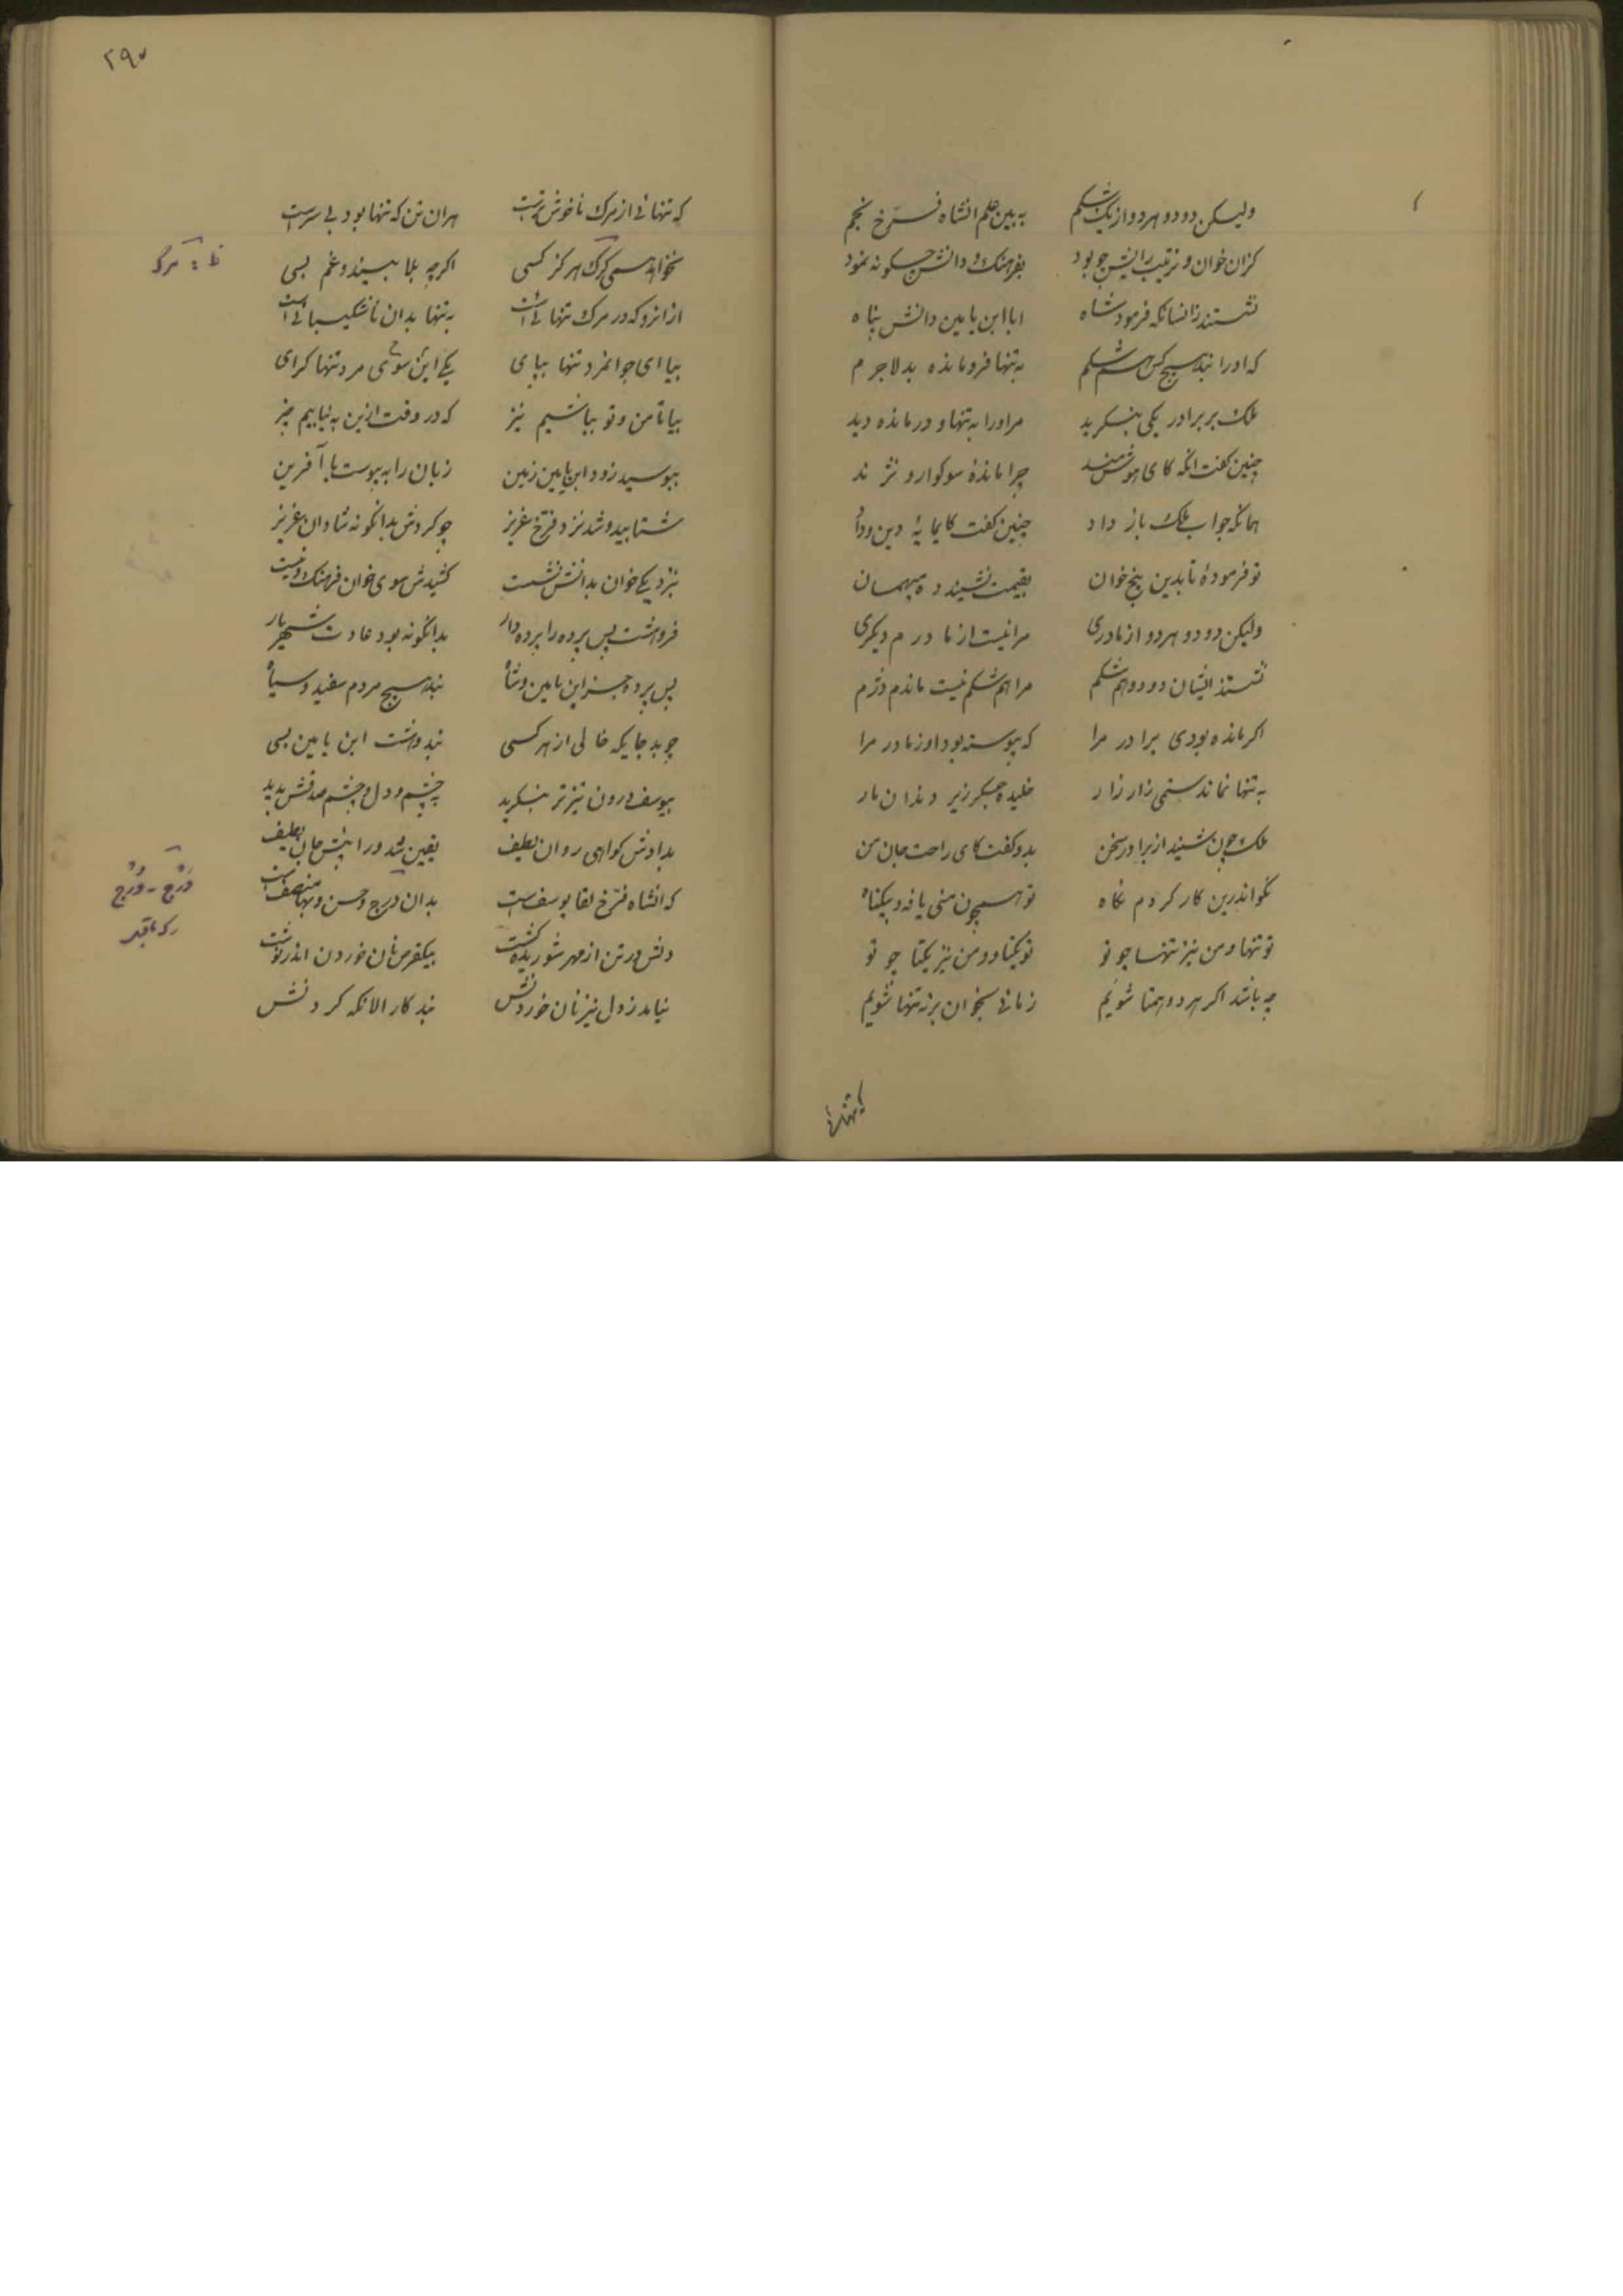 ولیکن دو دو هر دو از یک شکم به بین علم انشاه فرخ نجم
کزان خوان و ترتیب رایش چو بود بفرهنک و دانش چکونه نمود
نشستند زانسانکه فرمود شاه ابا ابن یامین دانش پناه
که اورا نبد هیچ کس هم شکم به تنها فرو مانده بد لاجرم
ملک بر برادر یکی بنکرید مر اورا به تنها و درمانده دید
چنین کفت انکه کای هوشمند چرا ماندهٔ سوکوار و نژند
همانکه جواب ملک باز داد چنین کفت کایمایهٔ دین و داد
تو فرمودهٔ تا بدین پنج خوان بقیمت نشینند ده میهمان
ولیکن دو دو هر دو از مادری مرا نیست از مادرم دیکری
نشستند ایشان دو دو هم شکم مرا هم شکم نیست ماندم دژم
اکر مانده بودی برادر مرا که پیوسته بود او ز مادر مرا
به تنها نماندستمی زار زار خلیده جکر زیر دندان مار
ملک چون شنید از برادر سخن بدو کفت کای راحت جان من
نکو اندرین کار کردم نکاه تو همچون منی یافه و بیکناه
تو تنها و من نیز تنها چو تو تو یکتا دو من نیز یکتا چو تو
چه باشد اکر هر دو همتا شویم زمانی بخوان بر نه تنها شویم
که تنها
۲۹۷
که تنهائی از مرک ناخوش ترست هران تن که تنها بود بی سرست
نخواهد همی کرک هرکز کسی اکرچه بلا بیند و غم بسی
ظ : مرک
ازانرو که در مرک تنهائی است به تنها بدان ناشکیبائی است
بیا ای جوانمرد تنها بپای یکی این سوی مرد تنها کرای
بیا تا من و تو بباشیم نیز که در وقت ازین به نیابیم چیز
ببوسید زود ابن یامین زمین زبان را به پیوست با آفرین
شتابید و شد نزد فرخ عزیز چو کردش بدانکونه شادان عزیز
بنزدیک خوان بدانش نشست کشیدش سوی خوان فرهنک دست
فروهشت پس پرده را پرده دار بدانکونه بود عادت شهریار
پس پرده جز ابن یامین و شاه نبد هیچ مردم سفید و سیاه
چو بد جایکه خالی از هر کسی نبد وهشت ابن یامین بسی
بیوسف درون تیزتر بنکرید به چشم و دل و چشم صدقش بدید
بدادش کواهی روان لطیف یقین شد ورا پیش جان لطیف
که انشاه فرخ لقا یوسفست بدان درج و حسن و بها متصفست
دُرج - دَرج
رک ماقبل
دلش در تن از مهر شوریده کشت بیکقرص نان خوردن اندر نوشت
نیامد ز دل نیز نان خوردنش نبد کار الا نکه کردنش